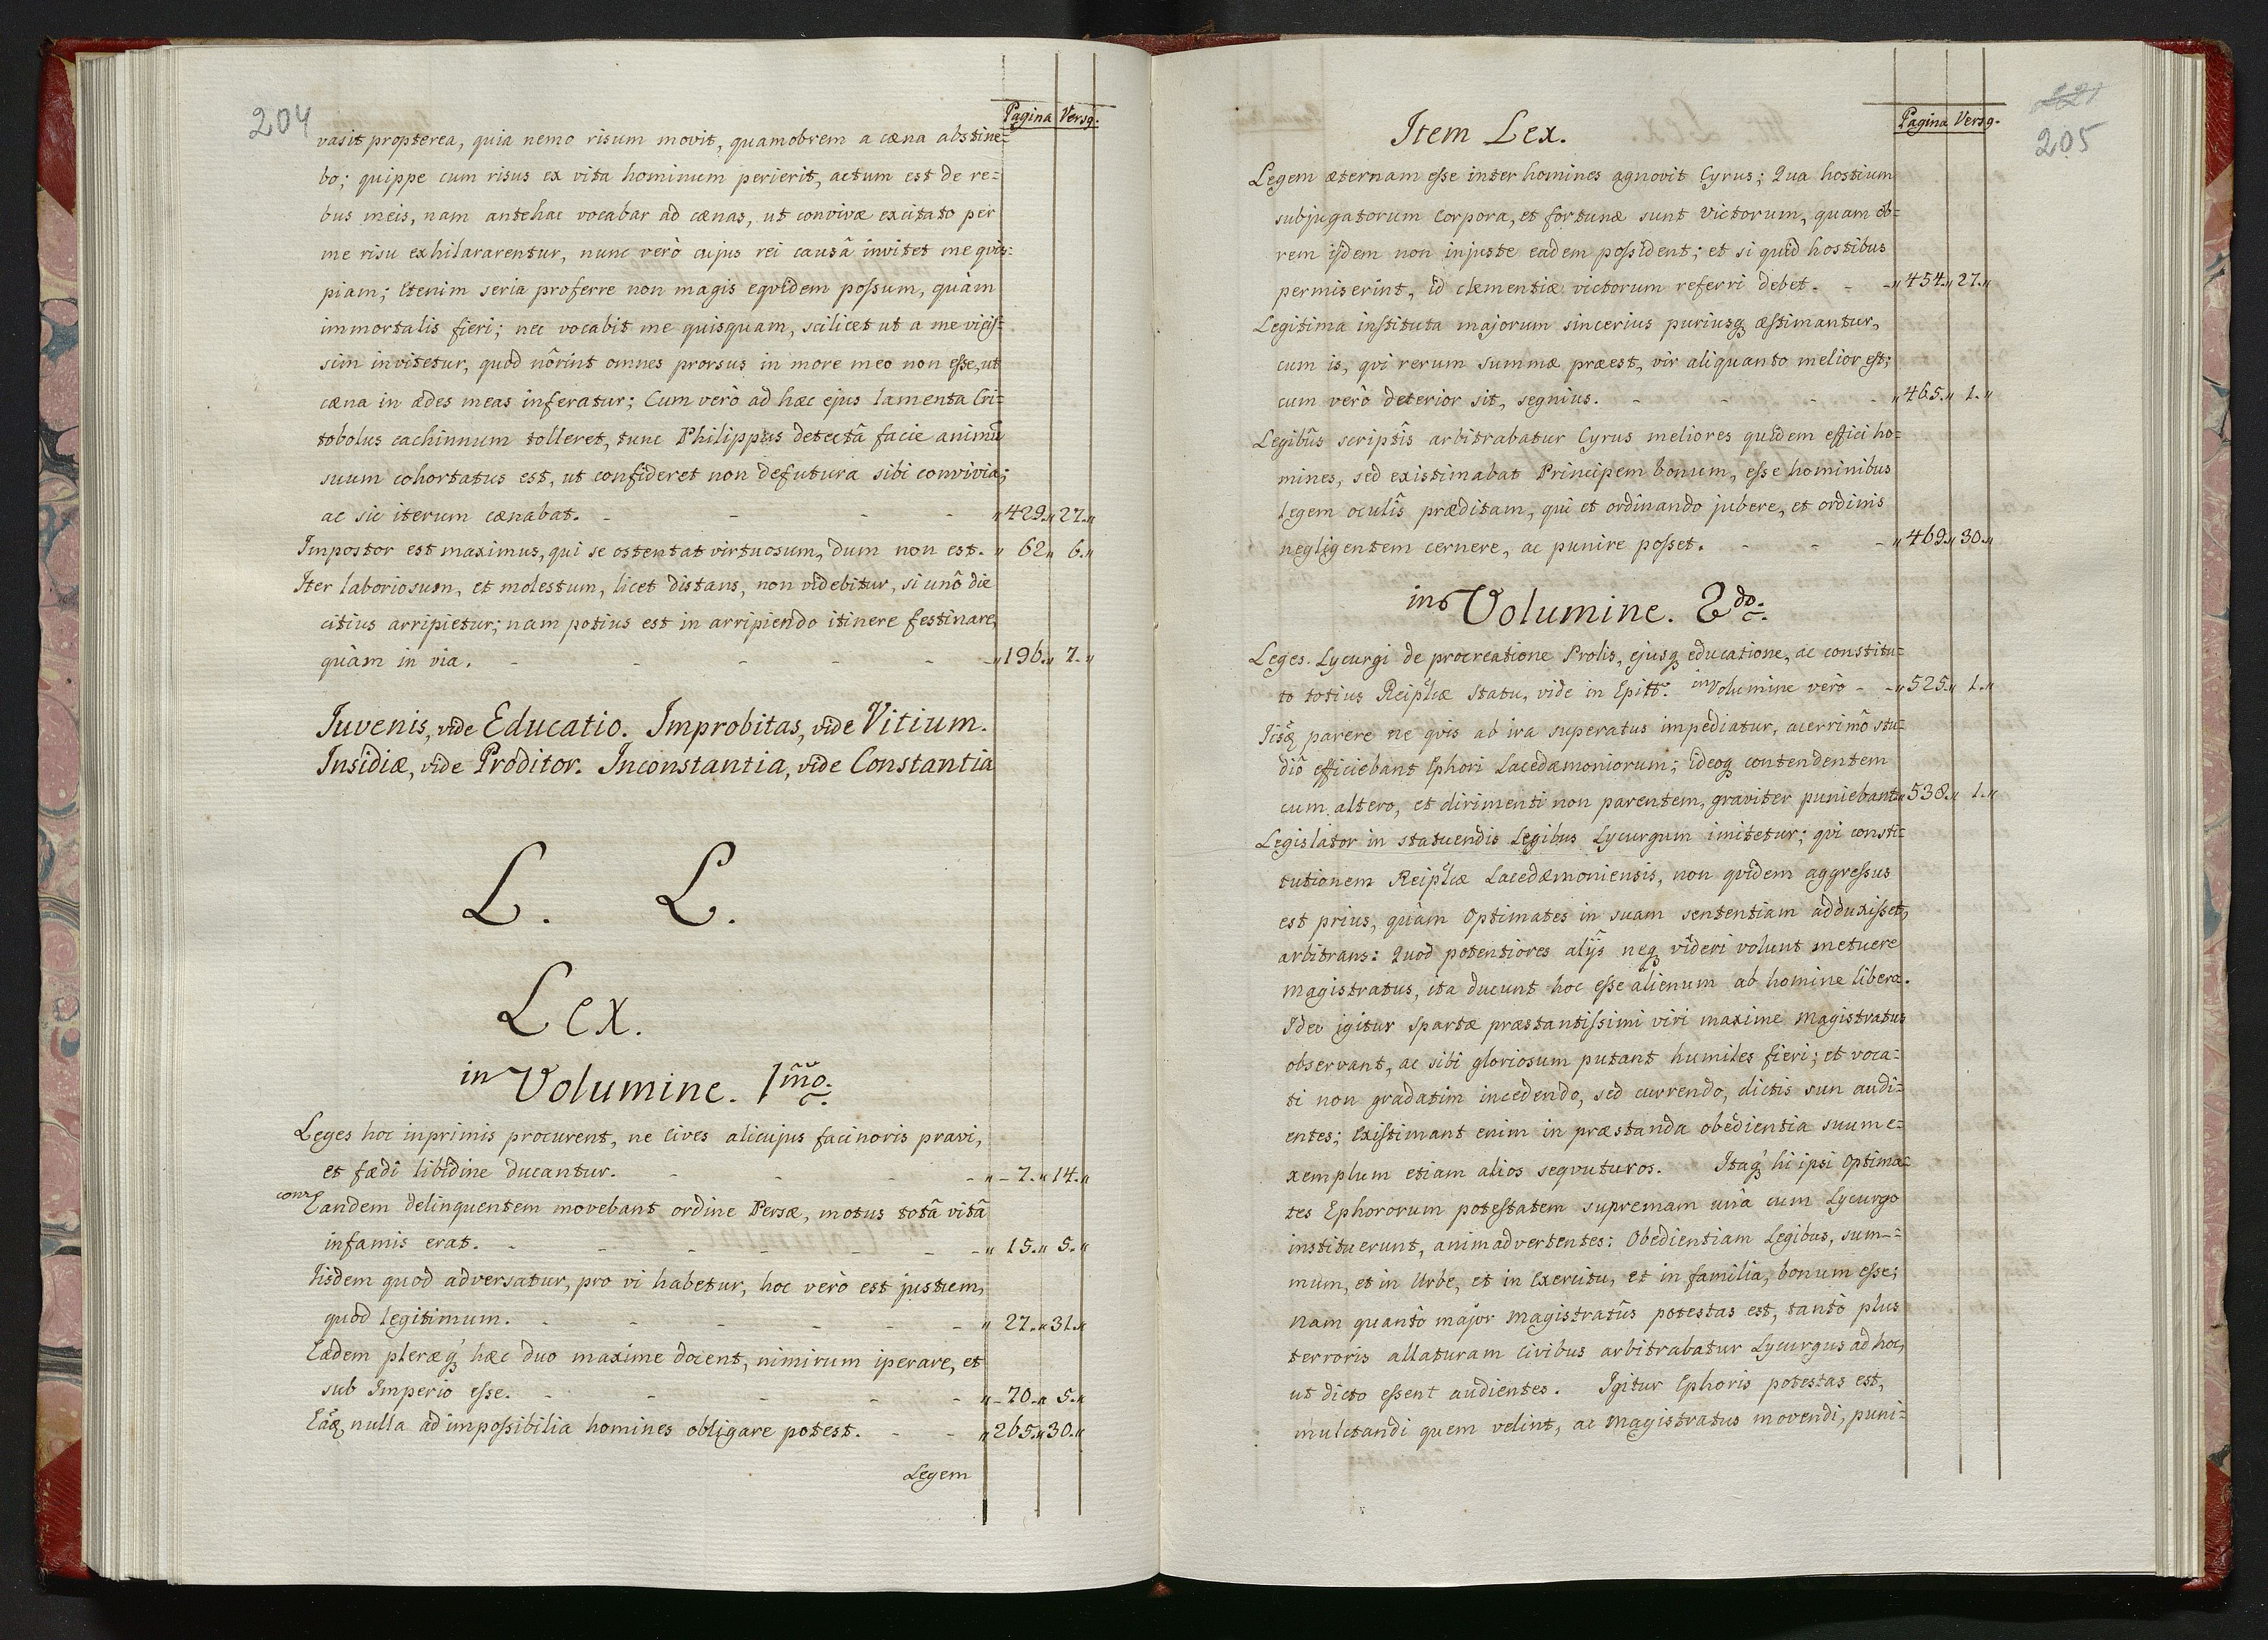 204
Pagina Versq.
vasit propterea, quia nemo risum movit, quamobrem a cæna abstine=
bo; quippe cum risus ex vita hominum perierit, actum est de re=
bus meis, nam antehac vocabar ad cænas, ut convivæ excitato per
me risu exhilararentur, nunc verò cujus rei causâ invitet me qvis=
piam; Etenim seria proferre non magis eqvidem possum, quàm
immortalis fieri; nec vocabit me quisquam, scilicet ut a me vicis=
sim invitetur, quod nôrint omnes prorsus in more meo non esse, ut
cæna in ædes meas inferatur; Cum verò ad hæc ejus lamenta Cri=
tobolus cachinnum tolleret, tunc Philippus detectâ facie animũ
suum cohortatus est, ut confideret non defutura sibi convivia;
ac sic iterum cænabat. - - - - „429.„ 27.„
Impostor est maximus, qui se ostentat virtuosum, dum non est. „ 62„ 6.„
Iter laboriosum, et molestum, licet distans, non videbitur, si unô die
citius arripietur; nam potius est in arripiendo itinere festinare,
quàm in via. - - - - - „196.„ 7.„
Juvenis, vide Educatio. Improbitas, vide Vitium.
Insidiæ, vide Proditor. Inconstantia, vide Constantia
L. L.
Lex.
in Volumine. 1mo.
Leges hoc inprimis procurent, ne Cives alicujus facinoris pravi,
et fædi libidine ducantur. - - - - „- 7.„ 14.„
contra
Eandem delinquentem movebant ordine Persæ, motus totâ vitâ
infamis erat. - - - - - - „ 15.„ 5.„
Iisdem quod adversatur, pro vi habetur, hoc verò est justum,
quod legitimum. - - - - - - „ 27.„ 31.„
Eædem pleræq́ hæc duo maxime docent, nimirum iperare, et
sub Imperio esse. - - - - - „- 70.„ 5.„
nulla ad impossibilia homines obligare potest. - - „265.„ 30.„
Legem
205
Pagina Versq.
Item Lex.
Legem æternam esse inter homines agnovit Cyrus; Qua hostium
subjugatorum Corpora, et fortunæ sunt Victorum, quam ob=
rem ijdem non injuste eadem possident; et si quid hostibus
permiserint, id clementiæ victorum referri debet. - - „454.„ 27.„
Legitima instituta majorum sincerius puriusq æstimantur,
cum is, qvi rerum summæ præest, vir aliquanto melior est;
cum verò deterior sit, segnius. - - - - „465.„ 1.„
Legibũs scriptîs arbitrabatur Cyrus meliores quidem effici ho=
mines, sed existimabat Principem bonum, esse hominibus
legem oculîs præditam, qui et ordinando jubere, et ordinis
negligentem cernere, ac punire posset. - - - „469.„ 30.„
in Volumine. 2do.
Leges Lycurgi de procreatione Prolis, ejusq educatione, ac constitu=
to totius Reiplicæ Statu, vide in Epitt. in Volumine verò - - „525.„ 1.„
parere ne qvis ab ira superatus impediatur, acerrimô stu=
diô efficiebant Ephori Lacedæmoniorum; ideoq contendentem
cum altero, et dirimenti non parentem, graviter puniebant. „538.„ 1.„
Legislator in statuendis Legibus Lycurgum imitetur; qvi consti=
tutionem Reiplicæ Lacedæmoniensis, non qvidem aggressus
est prius, quàm Optimates in suam sententiam adduxisset,
arbitrans: Quod potentiores alijs neq videri volunt metuere
Magistratus, ita ducunt hoc esse alienum ab homine libero.
Ideo igitur Spartæ præstantissimi viri maxime Magistratus
observant, ac sibi gloriosum putant humiles fieri; et voca=
ti non gradatim incedendo, sed currendo, dictis sun audi=
entes; Existimant enim in præstanda obedientia suum e=
xemplum etiam alios seqvuturos. Itaq́ hi ipsi Optima=
tes Ephororum potestatem supremam unà cum Lycurgo
instituerunt, animadvertentes: Obedientiam Legibus, sum=
mum, et in Urbe, et in Exercitu, et in familia, bonum esse;
Nam quantò major Magistratûs potestas est, tantò plus
terroris allaturam Civibus arbitrabatur Lycurgus ad hoc,
ut dicto essent audientes. Igitur Ephoris potestas est,
mulctandi quem velint, ac Magistratus movendi, puni=